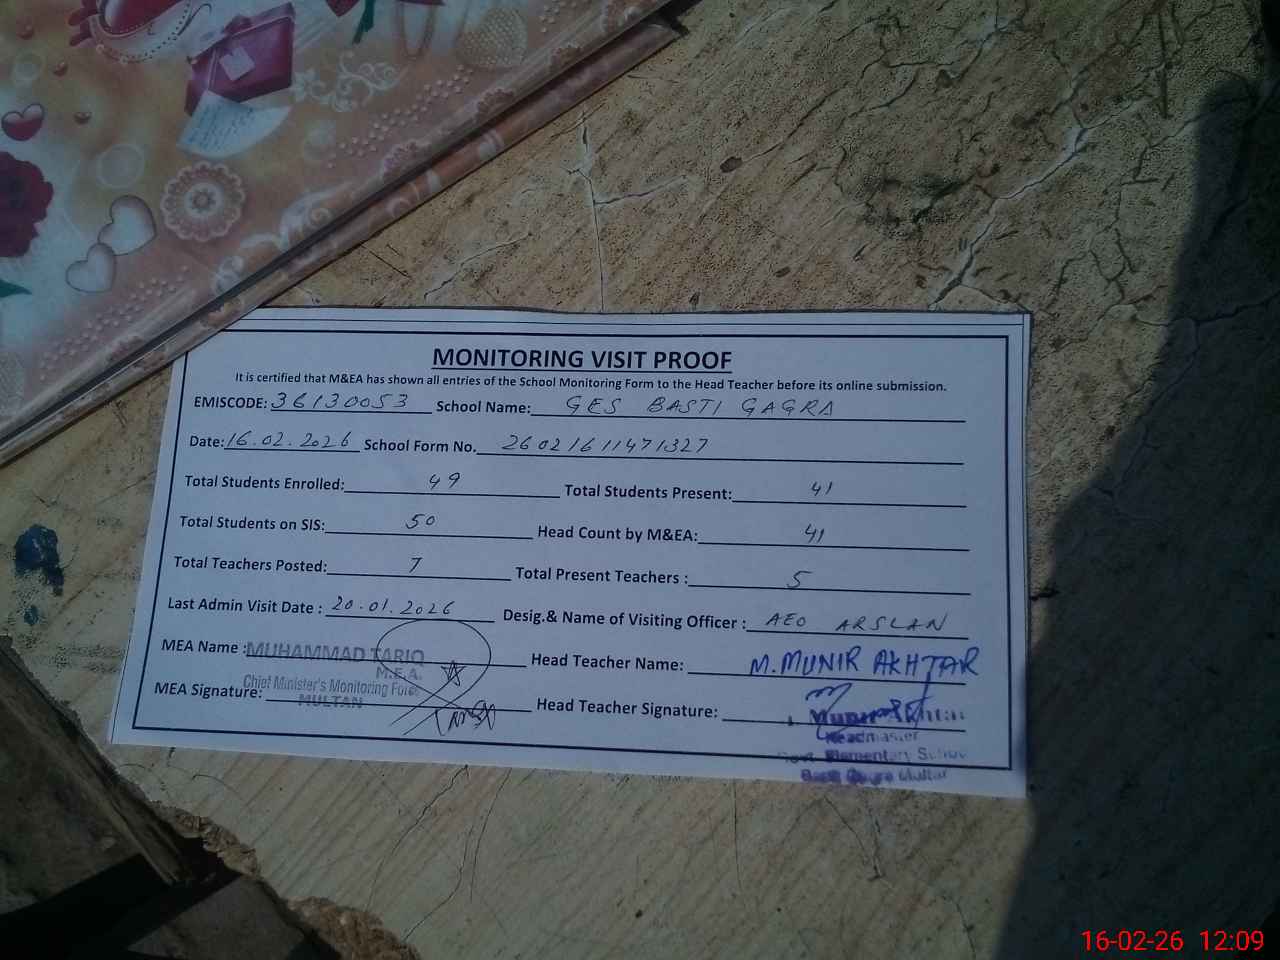 MONITORING VISIT PROOF
It is certified that M&EA has shown all entries of the School Monitoring Form to the Head Teacher before its online submission.
EMISCODE: 36130053 School Name: GES BASTI GAGRA
Date: 16.02.2026 School Form No. 26021611471327
Total Students Enrolled: 49 Total Students Present: 41
Total Students on SIS: 50 Head Count by M&EA: 41
Total Teachers Posted: 7 Total Present Teachers : 5
Last Admin Visit Date : 20.01.2026 Desig.& Name of Visiting Officer : AEO ARSLAN
MEA Name : MUHAMMAD TARIQ Head Teacher Name: M.MUNIR AKHTAR
M.E.A.
Chief Minister's Monitoring Force
MULTAN
MEA Signature: Head Teacher Signature:
Headmaster
Elementary School
16-02-26 12:09